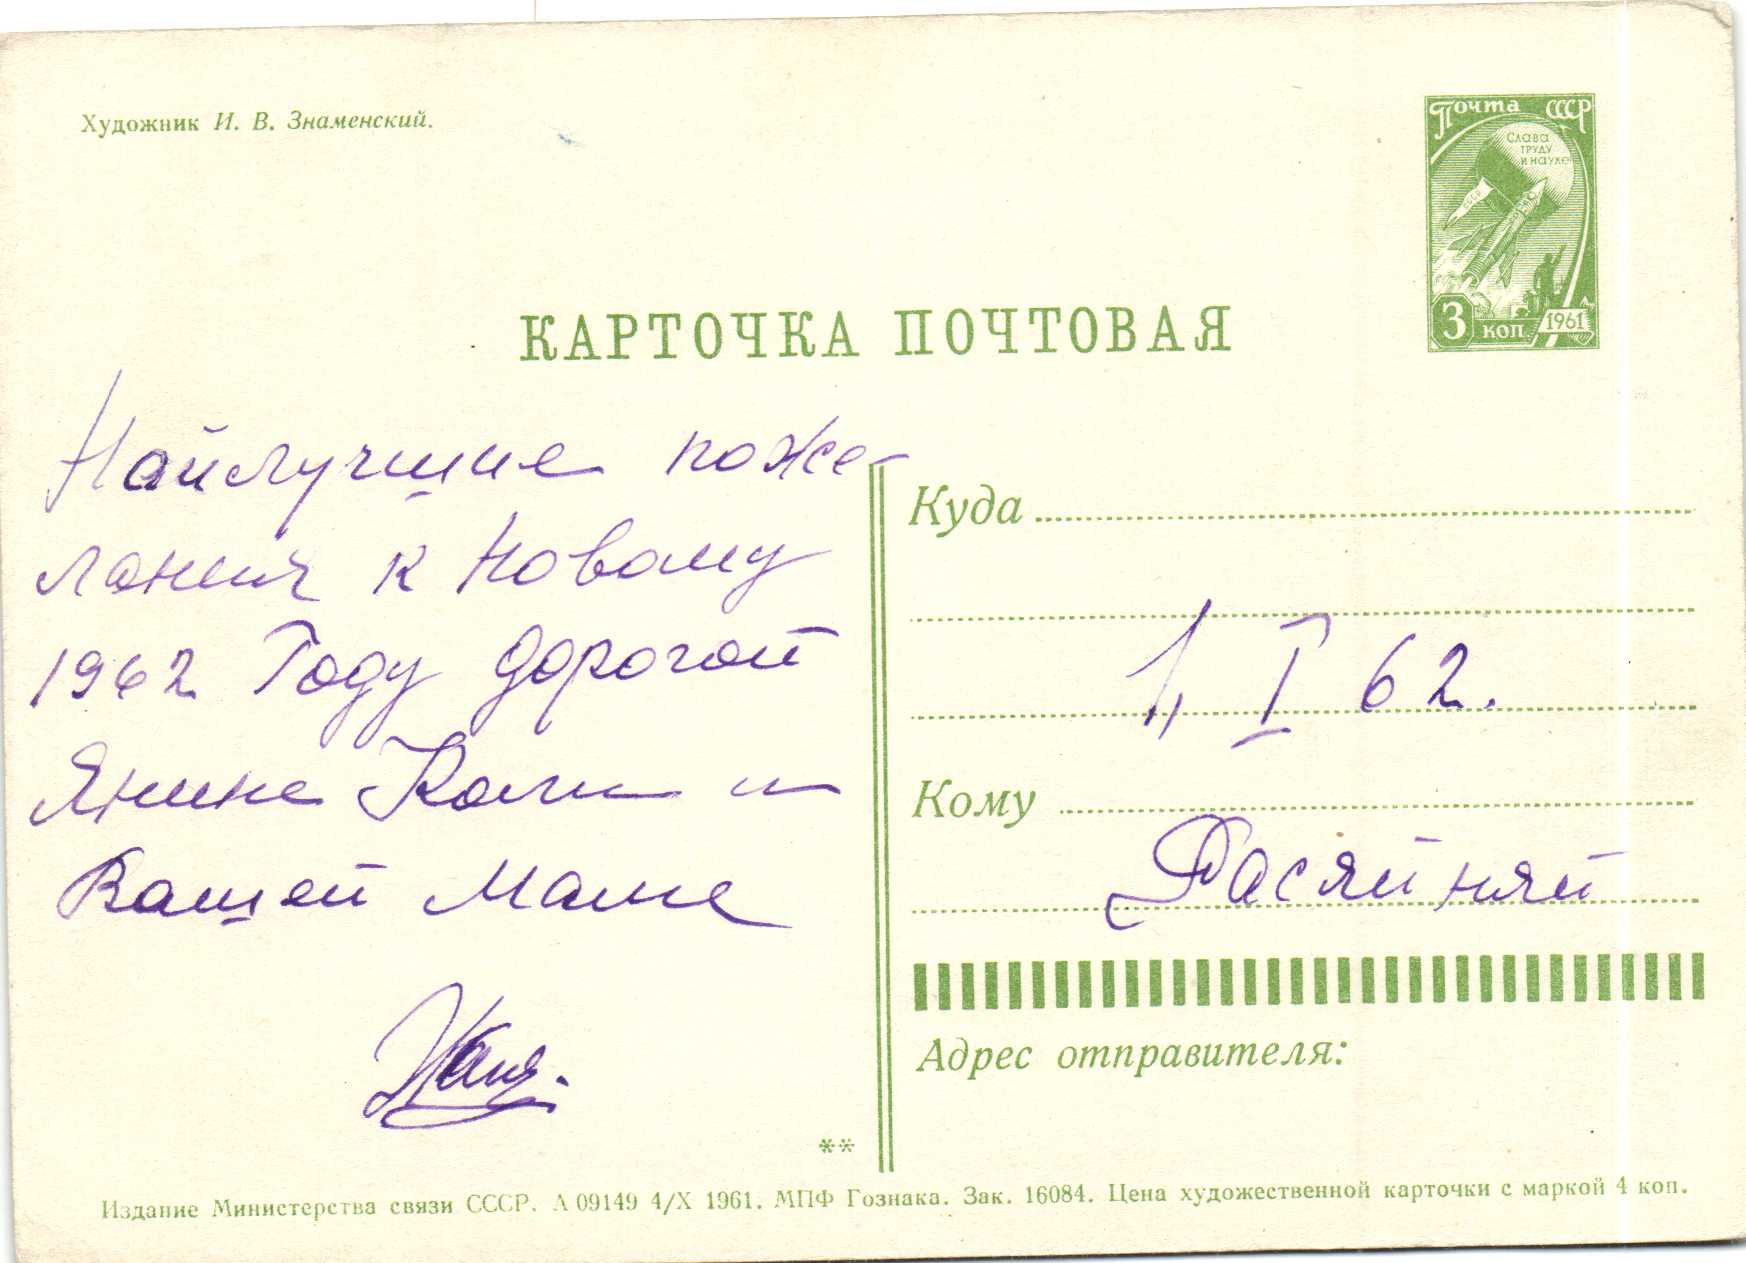 Художник И. В. Знаменский.
Почта СССР
Слава
труду
и науке
СССР
3 коп. 1961
КАРТОЧКА ПОЧТОВАЯ
Найлучшие поже-
лания к Новому
1962 Году дорогой
Янине Коли и
Вашей Маме
Куда
1, I 62.
Кому
Расяйняй
Адрес отправителя:
**
Издание Министерства связи СССР. А 09149 4/X 1961. МПФ Гознака. Зак. 16084. Цена художественной карточки с маркой 4 коп.